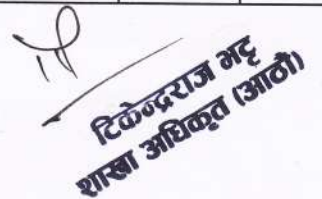 टिकेन्द्रराज भट्ट
शाखा अधिकृत (आठौं)